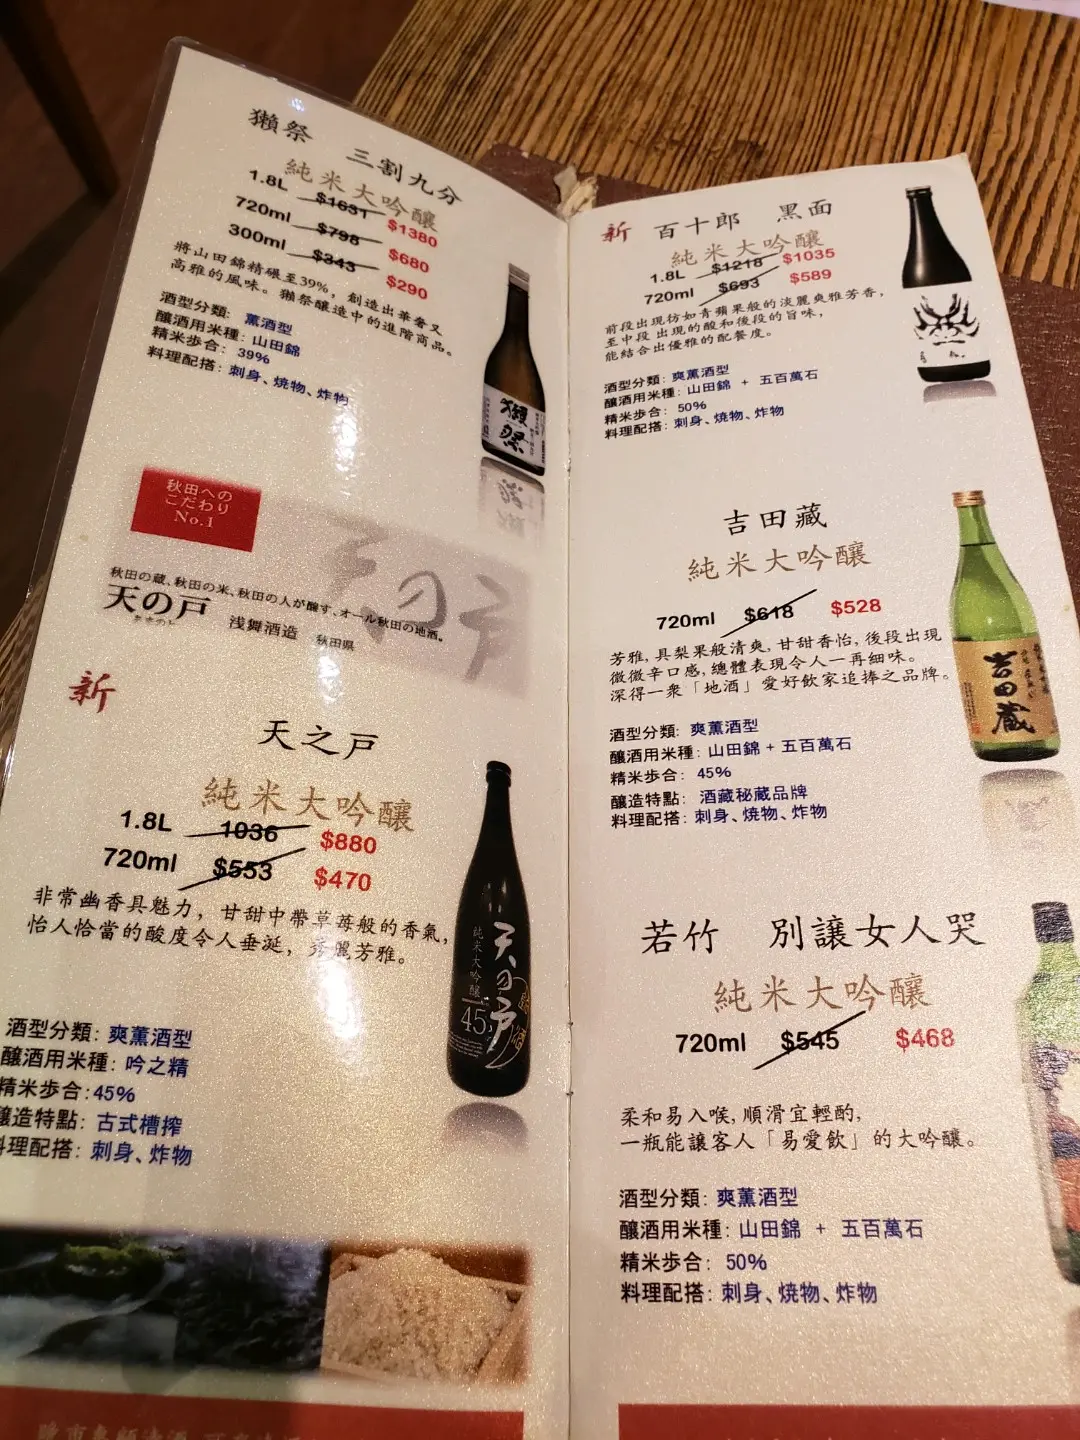 獺祭 三割九分
純米大吟釀
1.8L $1631 $1380
720ml $798 $680
300ml $343 $290
將山田錦精碾至39%，創造出華奢又
高雅的風味。獺祭釀造中的進階商品。
酒型分類: 薰酒型
釀酒用米種: 山田錦
精米歩合: 39%
料理配搭: 刺身、燒物、炸物
獺祭
秋田への
こだわり
No.1
秋田の蔵、秋田の米、秋田の人が醸す、オール秋田の地酒。
天の戸
天の戸 浅舞酒造 秋田県
新
天之戸
純米大吟釀
1.8L 1036 $880
720ml $553 $470
非常幽香具魅力，甘甜中帶草莓般的香氣，
怡人恰當的酸度令人垂涎，秀麗芳雅。
酒型分類: 爽薰酒型
釀酒用米種: 吟之精
精米歩合:45%
釀造特點: 古式槽搾
料理配搭: 刺身、炸物
天の戸
純米大吟醸
45
新 百十郎 黑面
純米大吟釀
1.8L $1218 $1035
720ml $693 $589
前段出現彷如青蘋果般的淡麗爽雅芳香，
至中段出現的酸和後段的旨味，
能結合出優雅的配餐度。
酒型分類: 爽薰酒型
釀酒用米種: 山田錦 + 五百萬石
精米歩合: 50%
料理配搭: 刺身、燒物、炸物
吉田藏
純米大吟釀
720ml $618 $528
芳雅，具梨果般清爽，甘甜香怡，後段出現
微微辛口感，總體表現令人一再細味。
深得一衆「地酒」愛好飲家追捧之品牌。
酒型分類: 爽薰酒型
釀酒用米種: 山田錦 + 五百萬石
精米歩合: 45%
釀造特點: 酒藏秘藏品牌
料理配搭: 刺身、燒物、炸物
吉田蔵
若竹 別讓女人哭
純米大吟釀
720ml $545 $468
柔和易入喉，順滑宜輕酌，
一瓶能讓客人「易愛飲」的大吟釀。
酒型分類: 爽薰酒型
釀酒用米種: 山田錦 + 五百萬石
精米歩合: 50%
料理配搭: 刺身、燒物、炸物